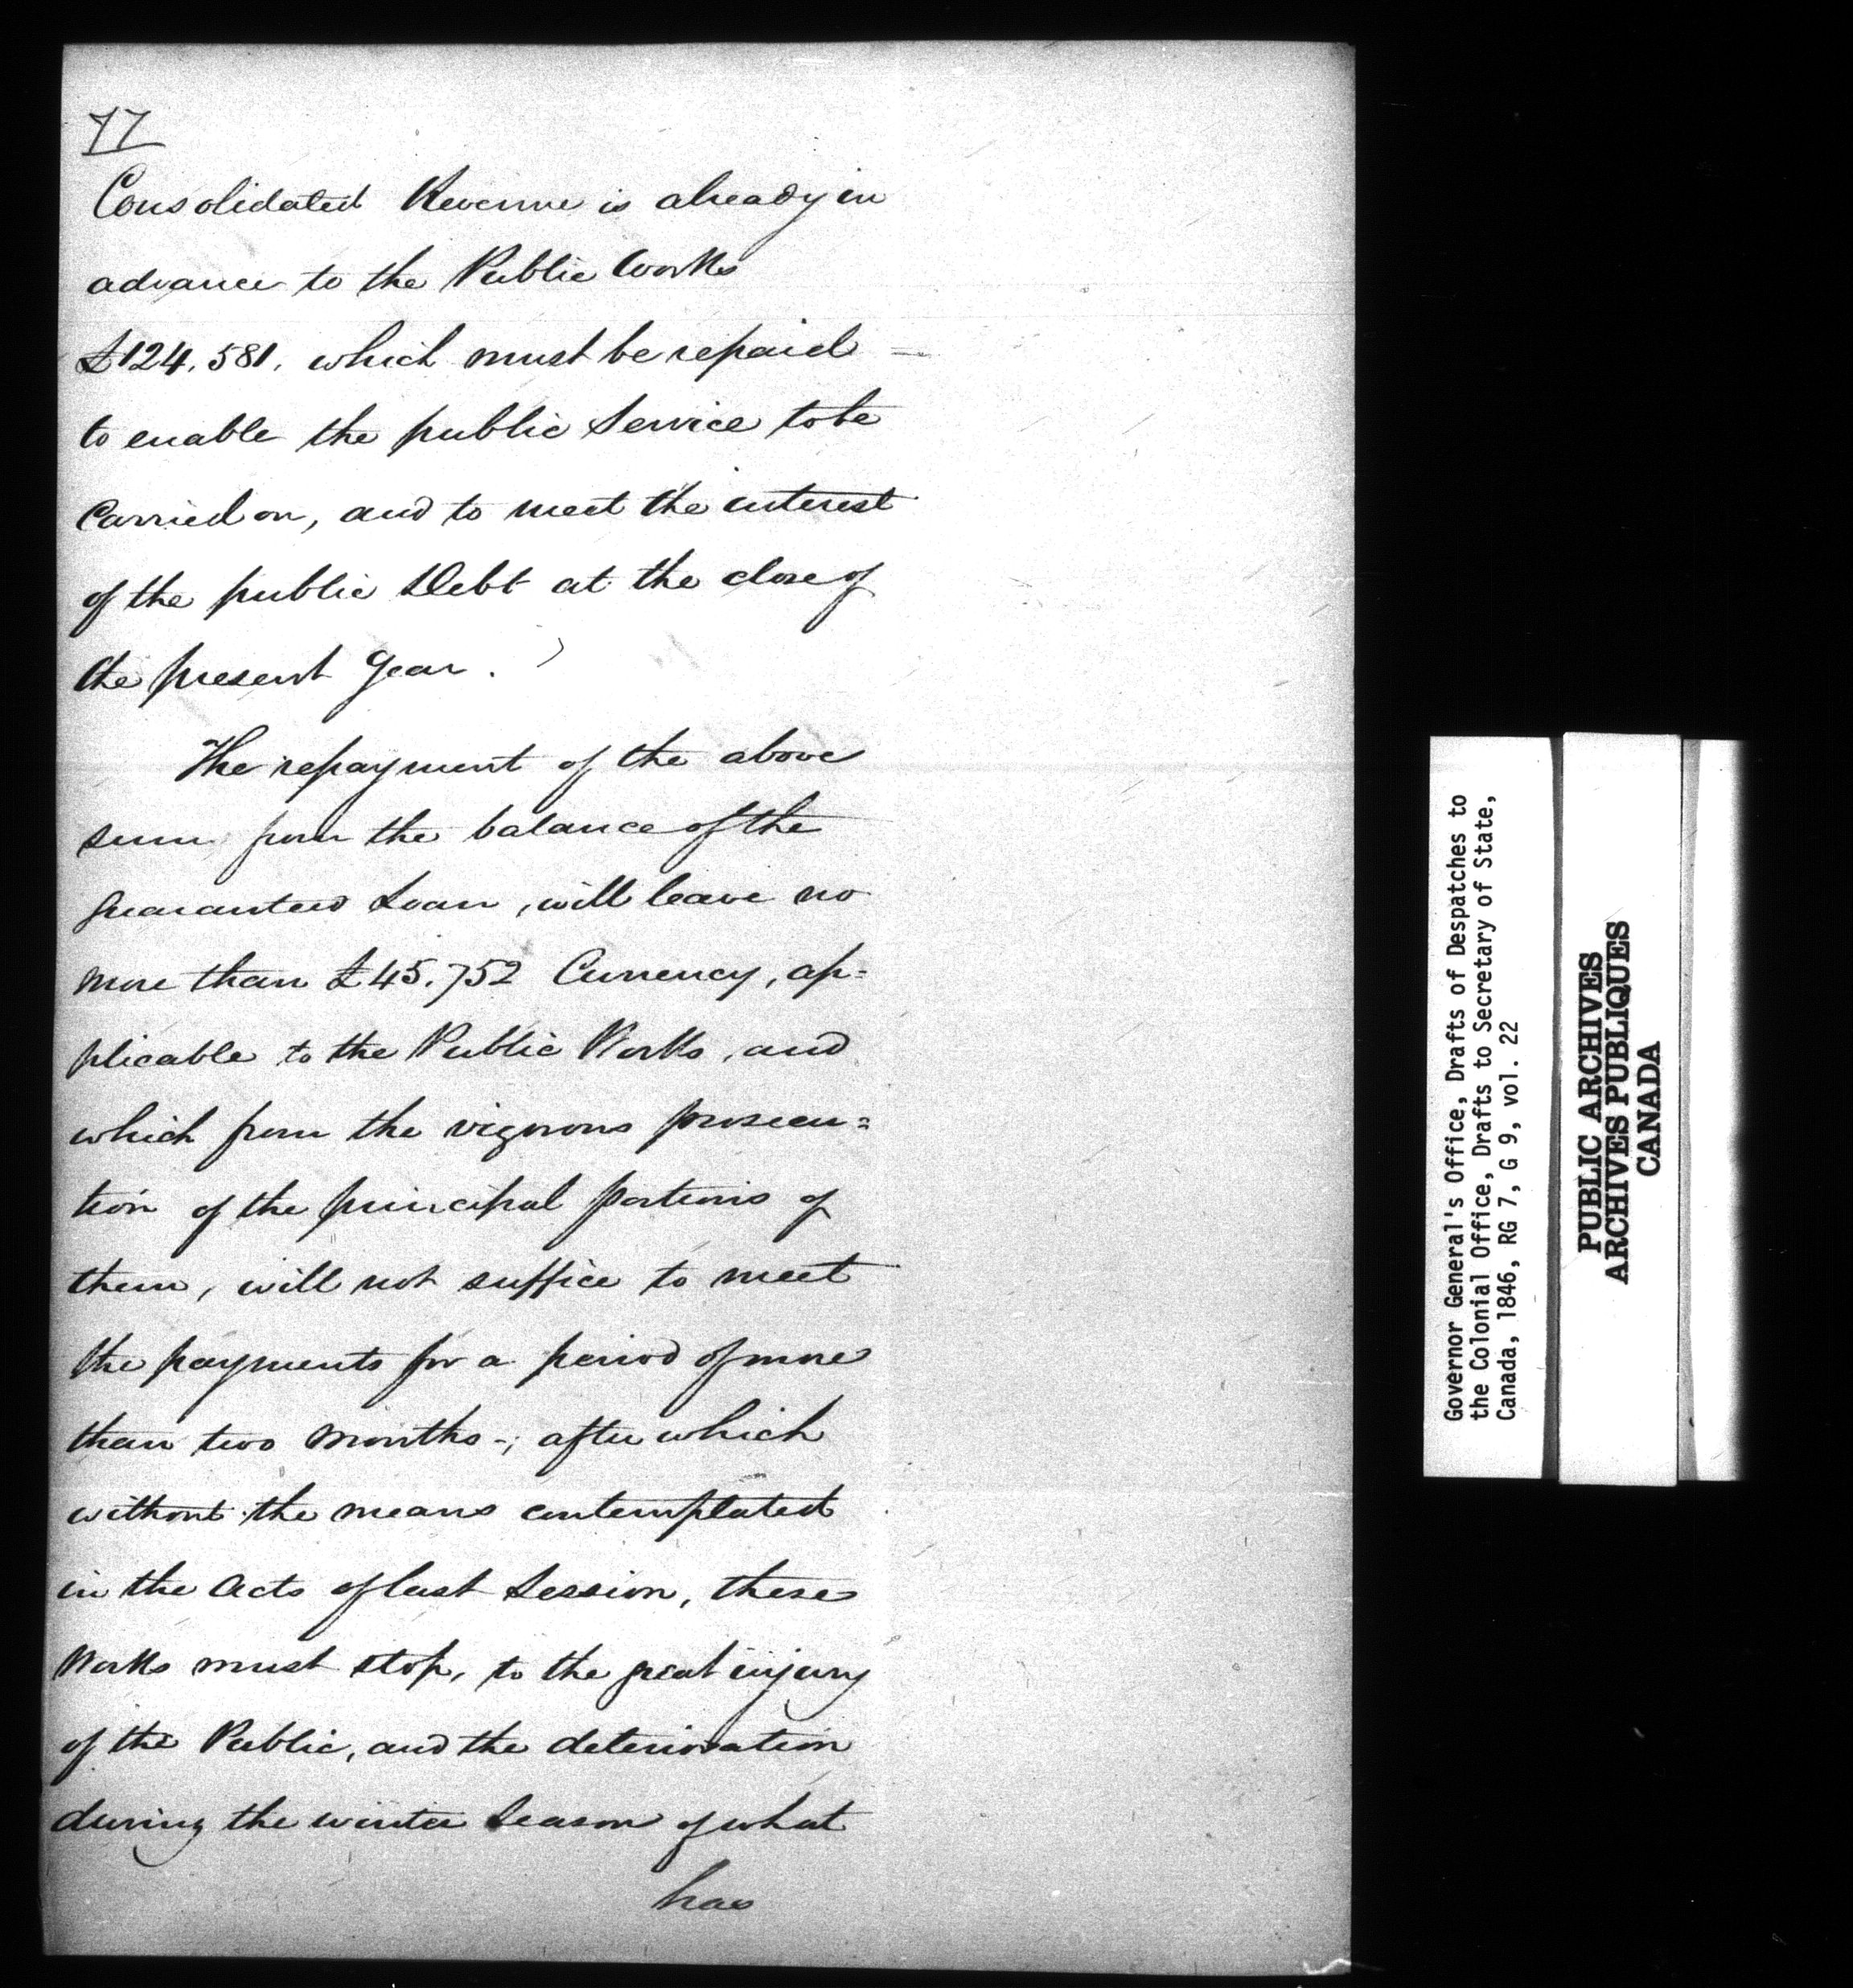 77
Consolidated Revenue is already in
advance to the Public Works
£124.581. which must be repaid
to enable the public Service to be
Carried on, and to meet the interest
of the public Debt at the close of
the present Year.
The repayment of the above
sum from the balance of the
guaranteed Loan, will leave no
more than £45.752 Currency, ap=
plicable to the Public Works, and
which from the vigorous prosecu=
tion of the principal portions of
them, will not suffice to meet
the payments for a period of more
than two months-; after which
without the means contemplated
in the Acts of last Session, these
Works must stop, to the great injury
of the Public, and the deterioration
during the winter Season of what
has
Governor General's Office, Drafts of Despatches to
the Colonial Office, Drafts to Secretary of State,
Canada, 1846, RG 7, G 9, vol. 22
PUBLIC ARCHIVES
ARCHIVES PUBLIQUES
CANADA